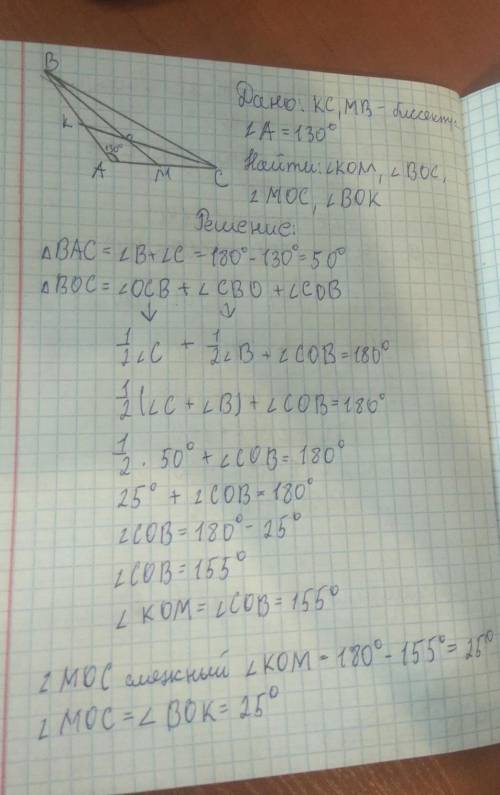 B
K
O
130°
A
M
C
Дано: KC, MB - биссект.
∠A = 130°
Найти: ∠KOM, ∠BOC,
∠MOC, ∠BOK
Решение:
△BAC = ∠B + ∠C = 180° - 130° = 50°
△BOC = ∠OCB + ∠CBO + ∠COB
↓ ↓
1/2 ∠C + 1/2 ∠B + ∠COB = 180°
1/2 (∠C + ∠B) + ∠COB = 180°
1/2 · 50° + ∠COB = 180°
25° + ∠COB = 180°
∠COB = 180° - 25°
∠COB = 155°
∠KOM = ∠COB = 155°
∠MOC смежный ∠KOM = 180° - 155° = 25°
∠MOC = ∠BOK = 25°